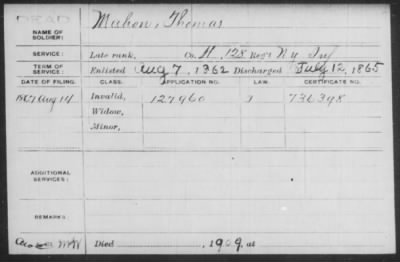 DEAD
NAME OF SOLDIER: Mahon, Thomas
SERVICE: Late rank, Co. H, 128 Reg't N.Y. Inf
TERM OF SERVICE: Enlisted Aug 7, 1862 Discharged July 12, 1865
DATE OF FILING. CLASS. APPLICATION NO. LAW. CERTIFICATE NO.
Aug 14 Invalid, 127960 736398
Widow,
Minor,
ADDITIONAL SERVICES:
REMARKS:
Died , 1909, at